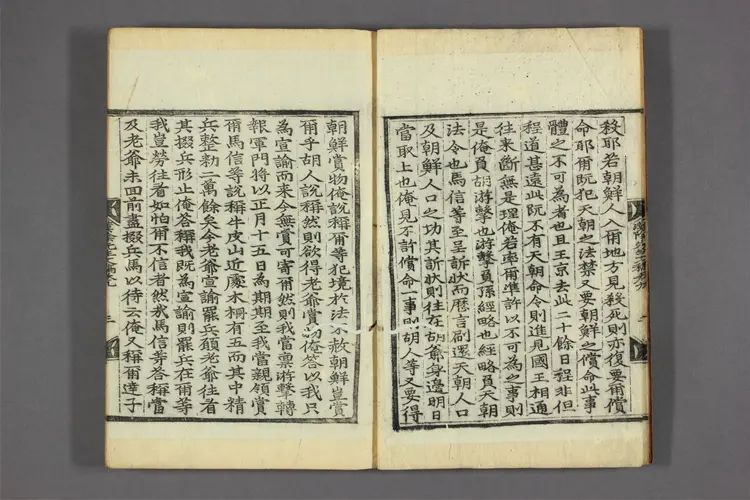 殺耶若朝鮮人入爾地方見殺死則亦復要爾償
命耶爾旣犯天朝之法禁又要朝鮮之償命此事
體之不可為者也且王京去此二十餘日程非但
程道甚遠此旣不有天朝命令則進見國王相通
徃来斷無是理俺若率爾準許以不可為之事則
是俺負胡游擊也游擊負孫經略也經略負天朝
法令也馬信等至呈訴狀而曆言刷還天朝人口
及朝鮮人口之功其訴狀則往在胡爺身邊明日
當取上也俺見不許償命一事則胡人等又要得
朝鮮賞物俺說稱爾等犯境於法不赦朝鮮豈賞
爾乎胡人說稱然則欲得老爺賞物俺答以我只
為宣諭而来今無賞可寄爾然則我當禀游擊轉
報軍門將以正月十五日為期期至我當親領賞
爾馬信等說稱牛皮山近處木柵有五而其中精
兵整勑二萬餘矣今老爺宣諭罷兵願老爺往看
其掇兵形止俺答稱我既為宣諭則罷兵在爾等
我豈勞往看如怕爾不信者然我馬信等答稱當
及老爺未回前盡掇兵馬以待云俺又稱爾㺚子